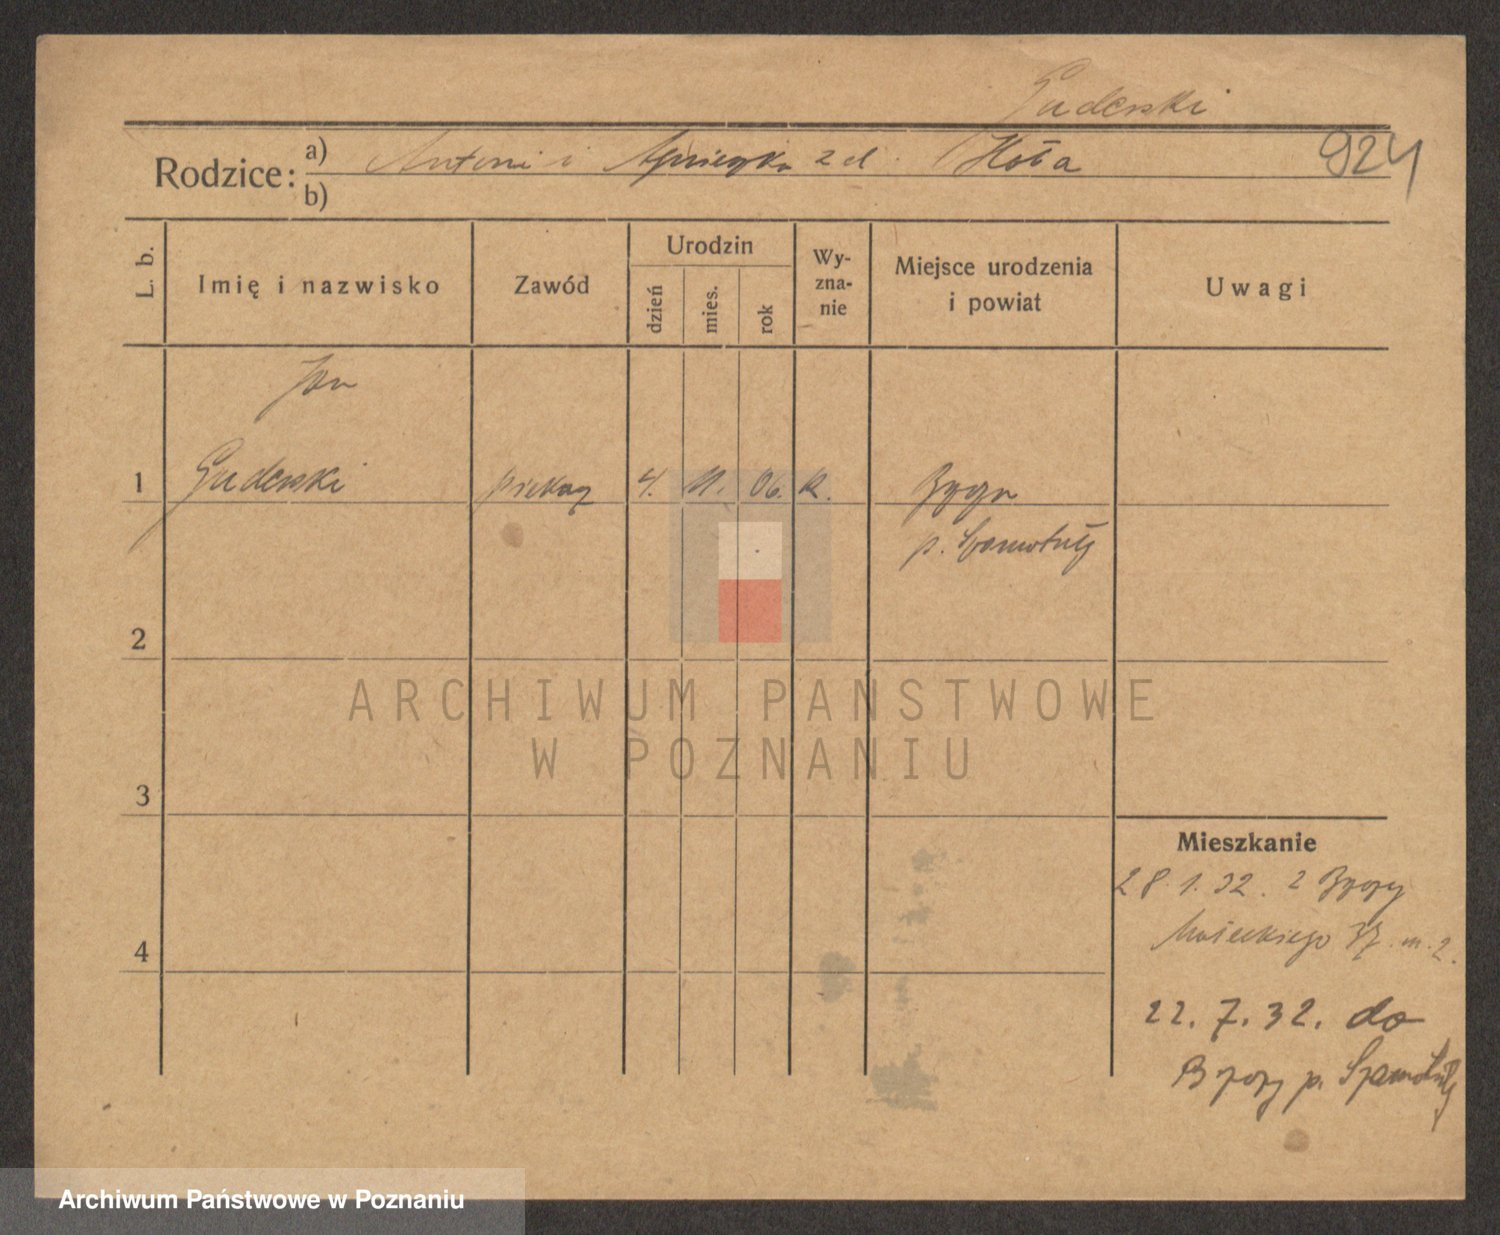 Guderski
Rodzice: a) Antoni i Agnieszka z d. Hoła 924
b)
L. b.
Imię i nazwisko
Zawód
Urodzin
dzień
mies.
rok
Wy-
zna-
nie
Miejsce urodzenia
i powiat
Uwagi
Jan
1 Guderski piekarz 4. 11. 06. k.
p. Szamotuły
2
3
4
Mieszkanie
28.1.32. z
37 m. 2.
22.7.32. do
p. Szamotuły
ARCHIWUM PAŃSTWOWE
W POZNANIU
Archiwum Państwowe w Poznaniu